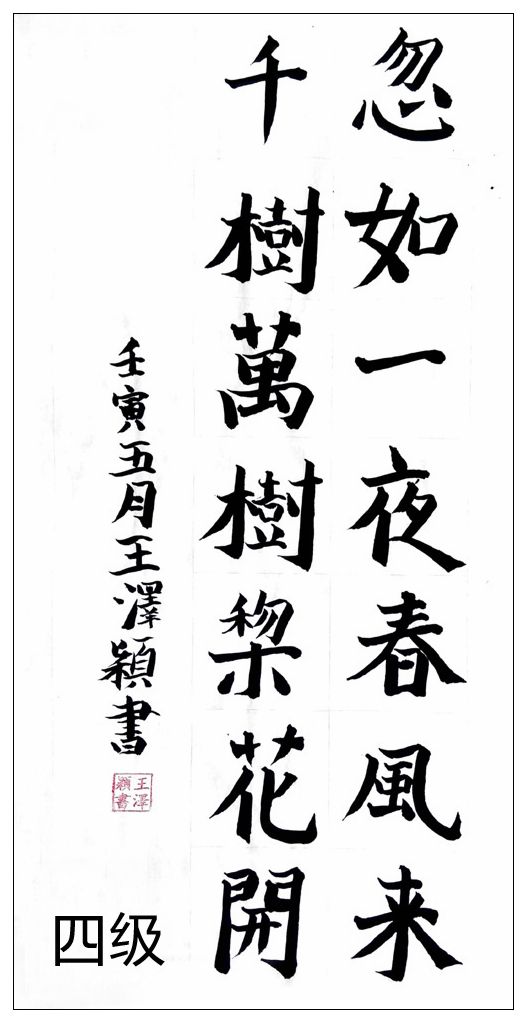 忽如一夜春風来
千樹萬樹棃花開
壬寅五月王澤穎書
王澤
穎書
四级